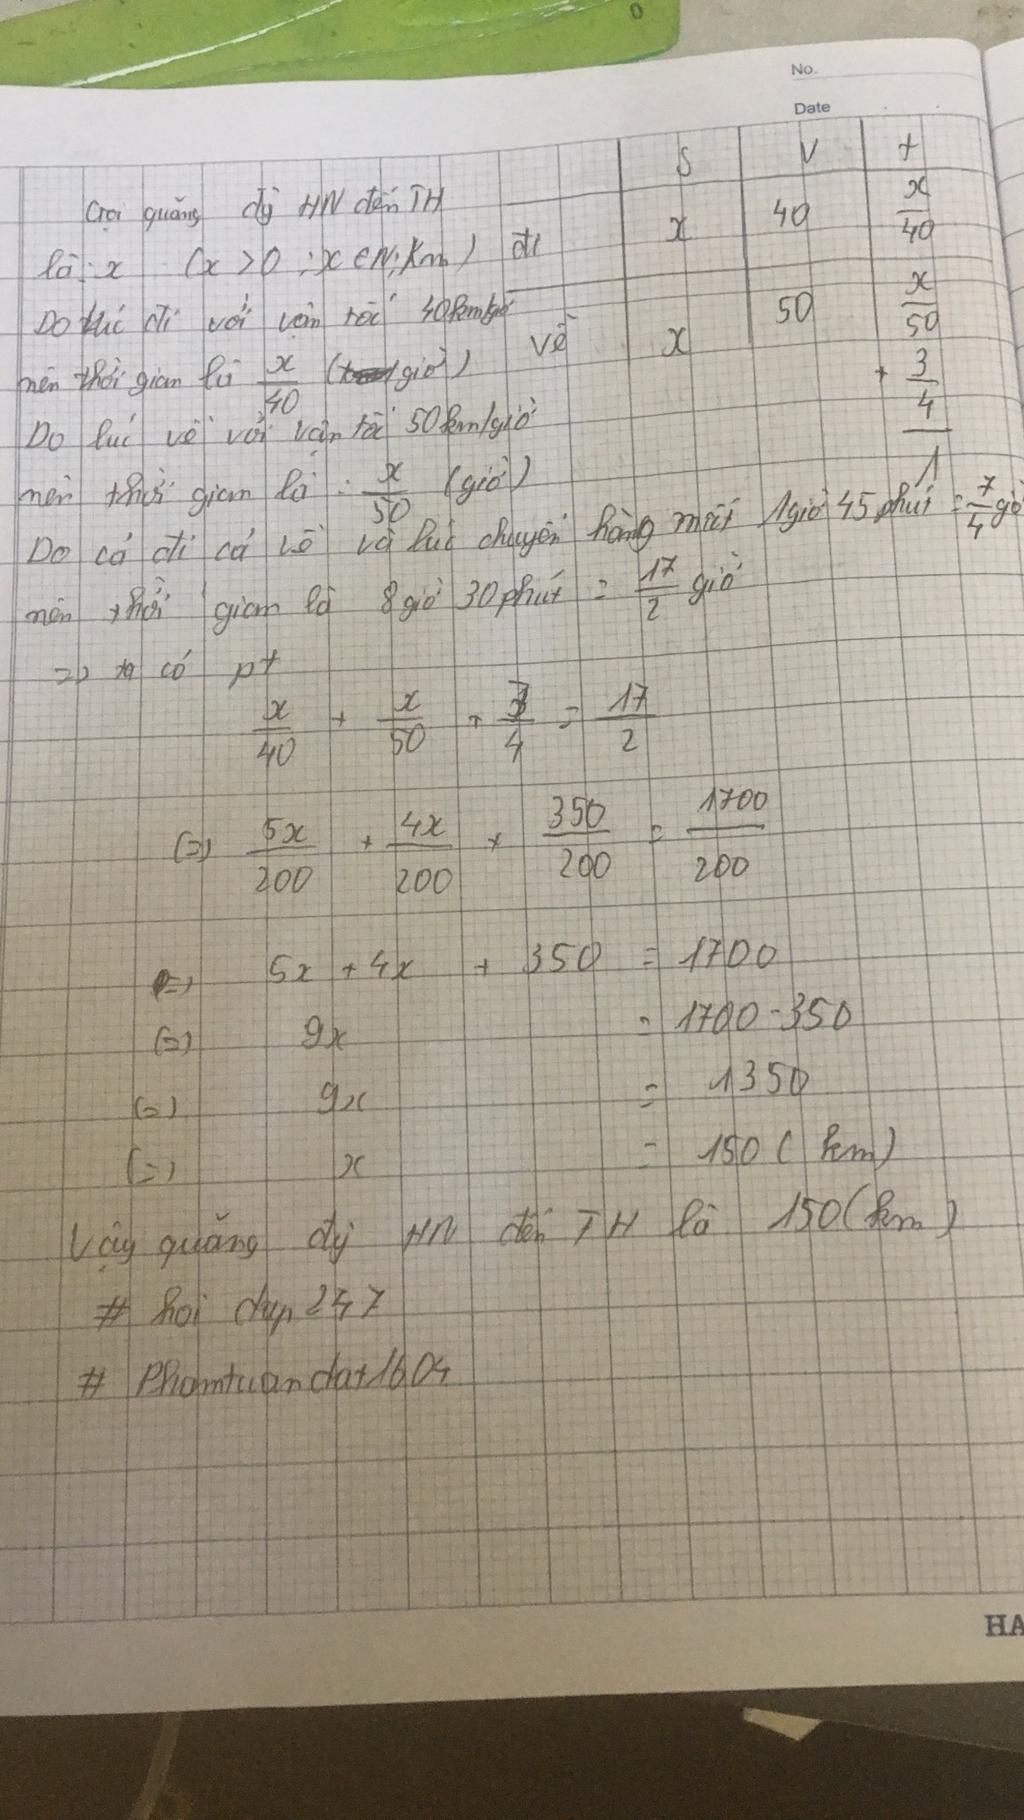 No.
Date
S V t
Gọi quãng đg HN đến TH
là: x (x > 0 ; x ∈ N; km)
đi x 40 x/40
Do lúc đi với vận tốc 40km/giờ
nên thời gian là x/40 (giờ)
về x 50 x/50
+ 3/4
1
Do lúc về với vận tốc 50km/giờ
nên thời gian là : x/50 (giờ)
Do cả đi cả về và lúc chuyển hàng mất 1giờ 45 phút = 7/4 giờ
nên thời gian là 8 giờ 30 phút = 17/2 giờ
=> ta có pt
x/40 + x/50 + 7/4 = 17/2
(=) 5x/200 + 4x/200 + 350/200 = 1700/200
(=) 5x + 4x + 350 = 1700
(=) 9x = 1700 - 350
(=) 9x = 1350
(=) x = 150 ( km)
Vậy quãng đg HN đến TH là 150 (km)
# hoi dap 247
# Phamtuandat1604
HA